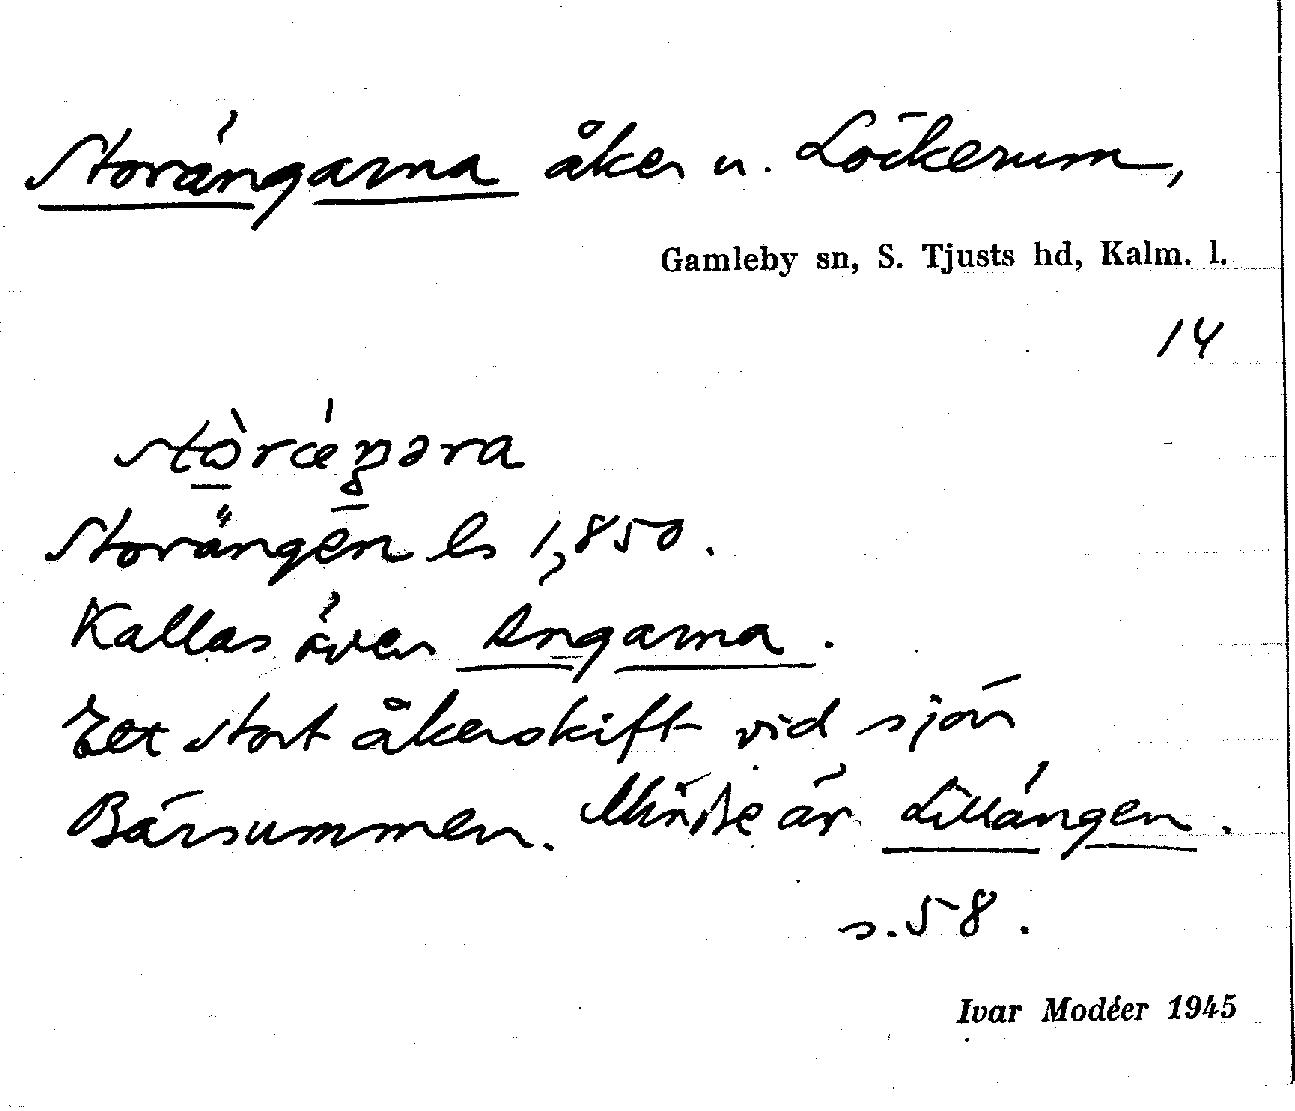 Storängarna åker u. Löckerum,
Gamleby sn, S. Tjusts hd, Kalm. l.
14
Storängen ls 1,850.
Kallas även Ängarna.
Ett stort åkerskift vid sjön
Bärsummen. Mindre är Lillängen.
s. 58.
Ivar Modéer 1945